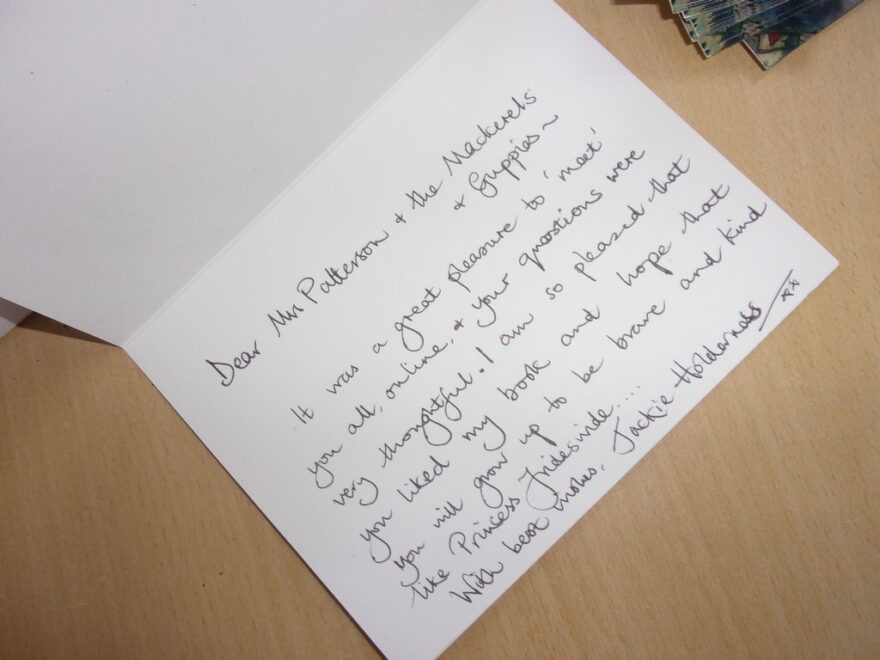 Dear Mrs Patterson & the Mackerels
& Guppies ~
It was a great pleasure to 'meet'
you all, online, & your questions were
very thoughtful. I am so pleased that
you liked my book and hope that
you will grow up to be brave and kind
like Princess Frideswide....
With best wishes, Jackie Holderness
xx